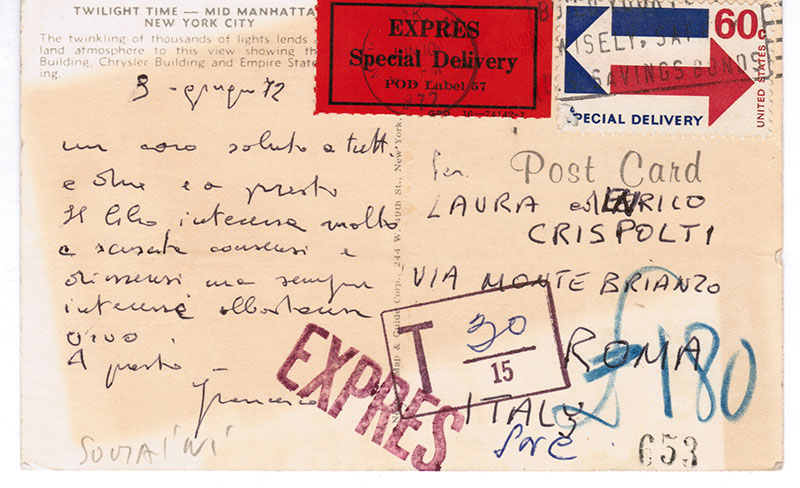 TWILIGHT TIME — MID MANHATTA
NEW YORK CITY
The twinkling of thousands of lights lends
land atmosphere to this view showing th
Building, Chrysler Building and Empire State
ing.
EXPRES
Special Delivery
POD Label 57
60c
UNITED STATES
SPECIAL DELIVERY
WISELY,
SAVINGS BONDS
3 - giugno 72
un caro saluto a tutti
e due e a presto
Il libro interessa molto
e suscita consensi e
dissensi ma sempre
interesse abbastanza
vivo!
A presto
Francesco
SOMAINI
Post Card
Per
LAURA ed ENRICO
CRISPOLTI
VIA MONTE BRIANZO
ROMA
ITALY
Map & Guide Corp., 244 W. 49th St., New York,
T 30
15
EXPRES
£180
653